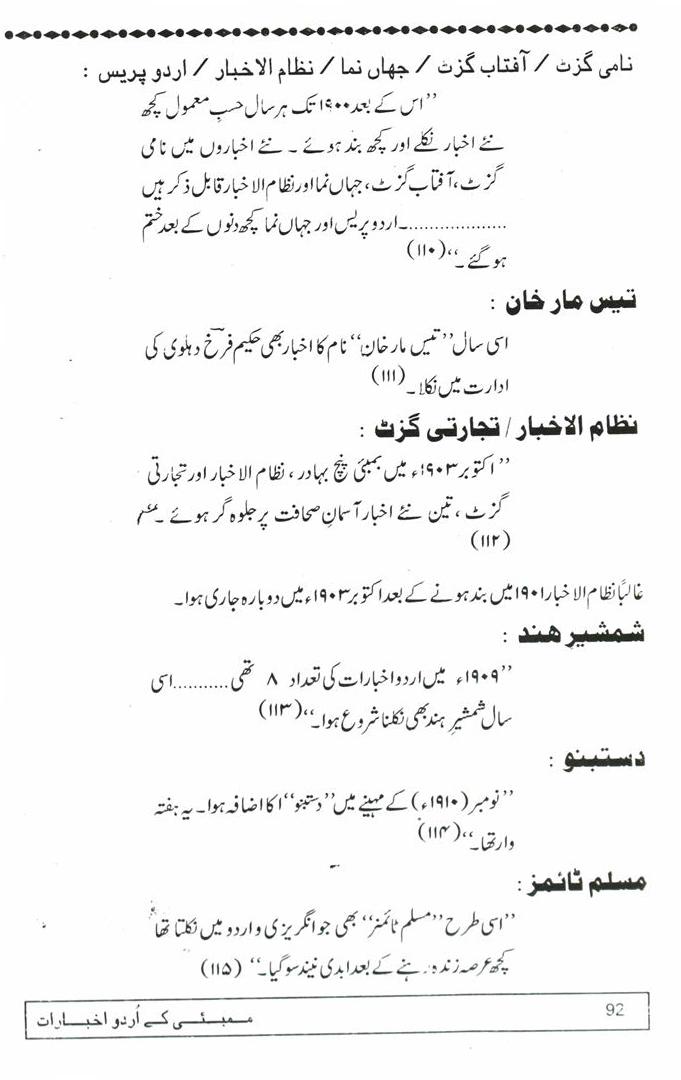 نامی گزٹ / آفتاب گزٹ / جہاں نما / نظام الاخبار / اردو پریس :
”اس کے بعد ۱۹۰۰ تک ہر سال حسبِ معمول کچھ
نئے اخبار نکلے اور کچھ بند ہوئے ۔ نئے اخباروں میں نامی
گزٹ، آفتاب گزٹ، جہاں نما اور نظام الاخبار قابل ذکر ہیں
...................۔اردو پریس اور جہاں نما کچھ دنوں کے بعد ختم
ہوگئے ۔“ (۱۱۰)
تیس مار خان :
اسی سال ”تیس مار خان“ نام کا اخبار بھی حکیم فرخؔ دہلوی کی
ادارت میں نکلا ۔ (۱۱۱)
نظام الاخبار / تجارتی گزٹ :
”اکتوبر ۱۹۰۳ء میں بمبئی پنچ بہادر، نظام الاخبار اور تجارتی
گزٹ، تین نئے اخبار آسمانِ صحافت پر جلوہ گر ہوئے ۔
(۱۱۲)
غالباً نظام الاخبار ۱۹۰۱ میں بند ہونے کے بعد اکتوبر ۱۹۰۳ء میں دوبارہ جاری ہوا۔
شمشیرِ ہند :
”۱۹۰۹ء میں اردو اخبارات کی تعداد ۸ تھی ...........اسی
سال شمشیرِ ہند بھی نکلنا شروع ہوا۔“ (۱۱۳)
دستبنو :
”نومبر (۱۹۱۰ء) کے مہینے میں ”دستبنو“ کا اضافہ ہوا۔ یہ ہفتہ
وار تھا۔“ (۱۱۴)
مسلم ٹائمز :
”اسی طرح ”مسلم ٹائمز“ بھی جو انگریزی و اردو میں نکلتا تھا
کچھ عرصہ زندہ رہنے کے بعد ابدی نیند سو گیا۔“ (۱۱۵)
ممبئی کے اُردو اخبارات 92